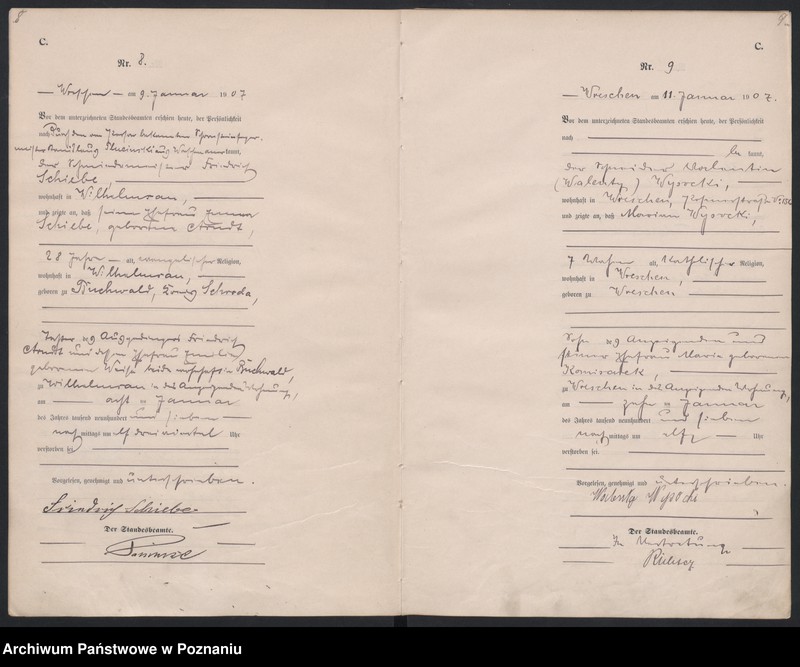 8
C.
Nr. 8.
Wreschen am 9. Januar 1907
Vor dem unterzeichneten Standesbeamten erschien heute, der Persönlichkeit
nach durch den
kannt,
der Friedrich
Schiebe
wohnhaft in Wilhelmsau,
und zeigte an, daß seine Ehefrau Emma
Schiebe, geborene Arndt,
28 Jahre alt, evangelischer Religion,
wohnhaft in Wilhelmsau,
geboren zu Buchwald, Kreis Schroda,
Tochter des Ausgedingers Friedrich
Arndt und dessen Ehefrau
geborenen Weise beide wohnhaft in Buchwald,
zu Wilhelmsau in des Anzeigenden Wohnung,
am acht ten Januar
des Jahres tausend neunhundert und sieben
nachmittags um elf dreiviertel Uhr
verstorben sei
Vorgelesen, genehmigt und unterschrieben.
Friedrich Schiebe
Der Standesbeamte.
9
C.
Nr. 9
Wreschen am 11. Januar 1907.
Vor dem unterzeichneten Standesbeamten erschien heute, der Persönlichkeit
nach
be kannt,
der Schneider Valentin
(Walenty) Wysocki,
wohnhaft in Wreschen,
und zeigte an, daß Maryan Wysocki,
7 alt, katholischer Religion,
wohnhaft in Wreschen,
geboren zu Wreschen
Sohn des Anzeigenden und
seiner Ehefrau Maria geborenen
zu Wreschen in des Anzeigenden Wohnung,
am zehn ten Januar
des Jahres tausend neunhundert und sieben
nachmittags um elf Uhr
verstorben sei.
Vorgelesen, genehmigt und unterschrieben.
Walenty Wysocki
Der Standesbeamte.
In Vertretung
Archiwum Państwowe w Poznaniu